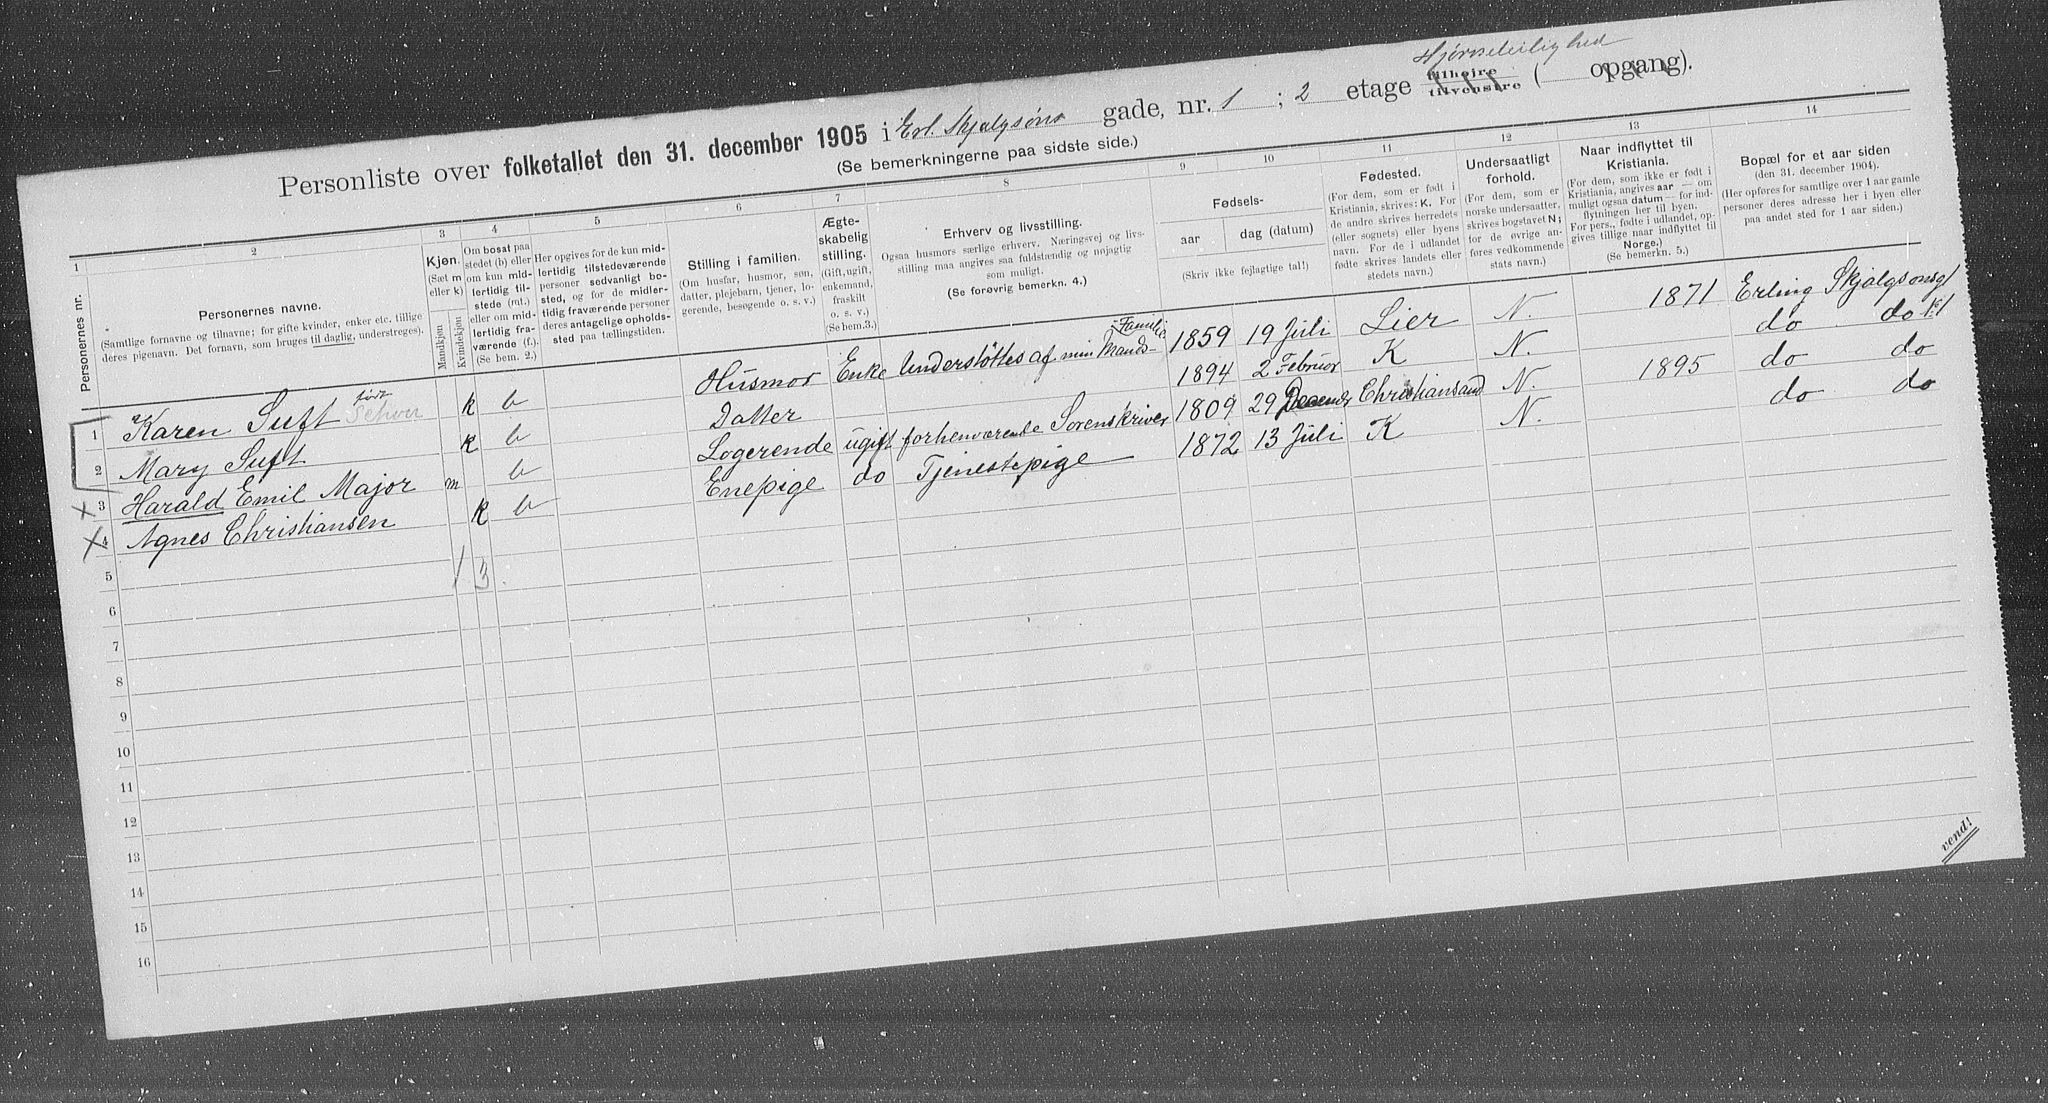 Personliste over folketallet den 31. december 1905 i Erl. Skjalgsöns gade, nr. 1 ; 2 etage tilhøire tilvenstre Hjørneleilighed ( opgang).
(Se bemerkningerne paa sidste side.)
1 2 3 4 5 6 7 8 9 10 11 12 13 14
Personernes nr.
Personernes navne.
(Samtlige fornavne og tilnavne; for gifte kvinder, enker etc. tillige
deres pigenavn. Det fornavn, som bruges til daglig, understreges).
Kjøn.
(Sæt m
eller k)
Mandkjøn
Kvindekjøn
Om bosat paa
stedet (b) eller
om kun mid-
lertidig til-
stede (mt.)
eller om mid-
lertidig fra-
værende (f.).
(Se bem. 2.)
Her opgives for de kun mid-
lertidig tilstedeværende
personer sedvanligt bo-
sted, og for de midler-
tidig fraværende personer
deres antagelige opholds-
sted paa tællingstiden.
Stilling i familien.
(Om husfar, husmor, søn,
datter, plejebarn, tjener, lo-
gerende, besøgende o. s. v.)
Ægte-
skabelig
stilling.
(Gift, ugift,
enkemand,
fraskilt
o. s. v.)
(Se bem.3.)
Erhverv og livsstilling.
Ogsaa husmors særlige erhverv. Næringsvej og livs-
stilling maa angives saa fuldstændig og nøjagtig
som muligt.
(Se forøvrig bemerkn. 4.)
Fødsels-
aar
dag (datum)
(Skriv ikke fejlagtige tal!)
Fødested.
(For dem, som er født i
Kristiania, skrives: K. For
de andre skrives herredets
(eller sognets) eller byens
navn. For de i udlandet
fødte skrives landets eller
stedets navn.)
Undersaatligt
forhold.
(For dem, som er
norske undersaatter,
skrives bogstavet N;
for de øvrige an-
føres vedkommende
stats navn.)
Naar indflyttet til
Kristiania.
(For dem, som ikke er født i
Kristiania, angives aar — om
muligt ogsaa datum — for ind-
flytningen her til byen.
For pers., fødte i udlandet, op-
gives tillige naar indflyttet til
Norge.)
(Se bemerkn. 5.)
Bopæl for et aar siden
(den 31. december 1904).
(Her opføres for samtlige over 1 aar gamle
personer deres adresse her i byen eller
paa andet sted for 1 aar siden.)
1 Karen Suft født k b Husmor Enke Understøttes af min Mands Familie 1859 19 Juli Lier N. 1871 Erling Skjalgsonsg 1
2 Mary Suft k b Datter 1894 2 Februar K N. do do
3 Harald Emil Major m b Logerende ugift forhenværende Sorenskriver 1809 29 Decemder Christiansand N. 1895 do do
4 Agnes Christiansen k b Enepige do Tjenestepige 1872 13 Juli K N. do do
5 1 3
6
7
8
9
10
11
12
13
14
15
16
vend!